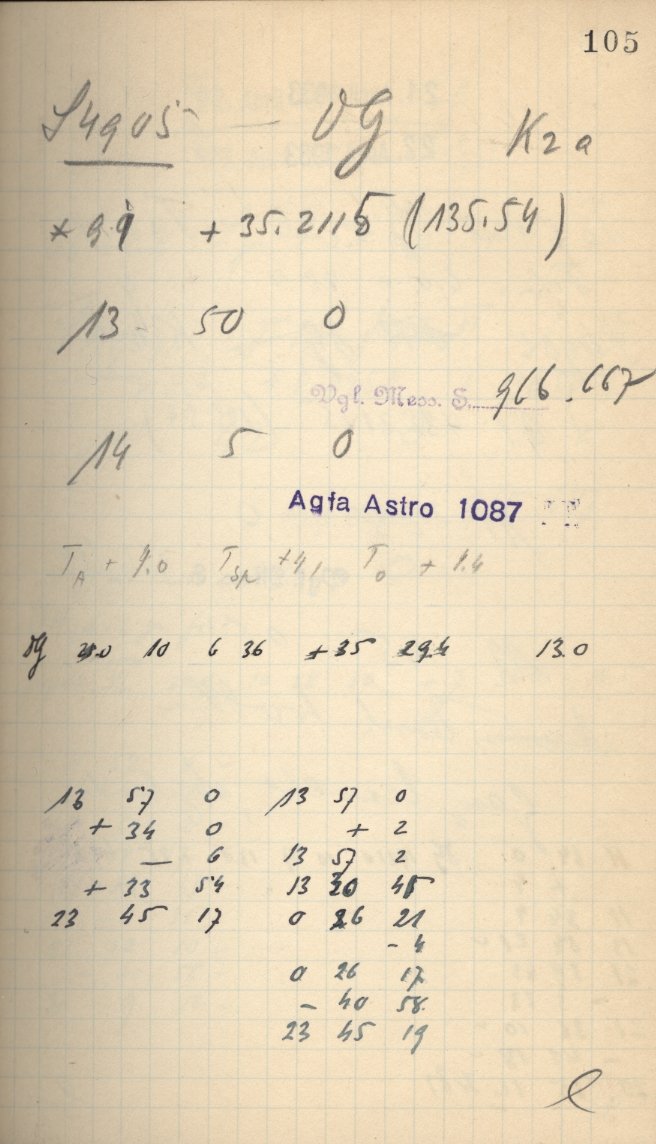 105
S4905 — VG K2a
+ 35.2115 (135.54)
13 50 0
Vgl. Mess. S. 966.667
14 5 0
Agfa Astro 1087
T_A + 9.0 T_Sp + 9,1 T_O + 9.4
VG 10 6 36 + 35 29.4 13.0
13 57 0 13 57 0
+ 34 0 + 2
— 6 13 57 2
+ 33 54 13 30 45
23 45 17 0 26 21
- 4
0 26 17
- 40 58
23 45 19